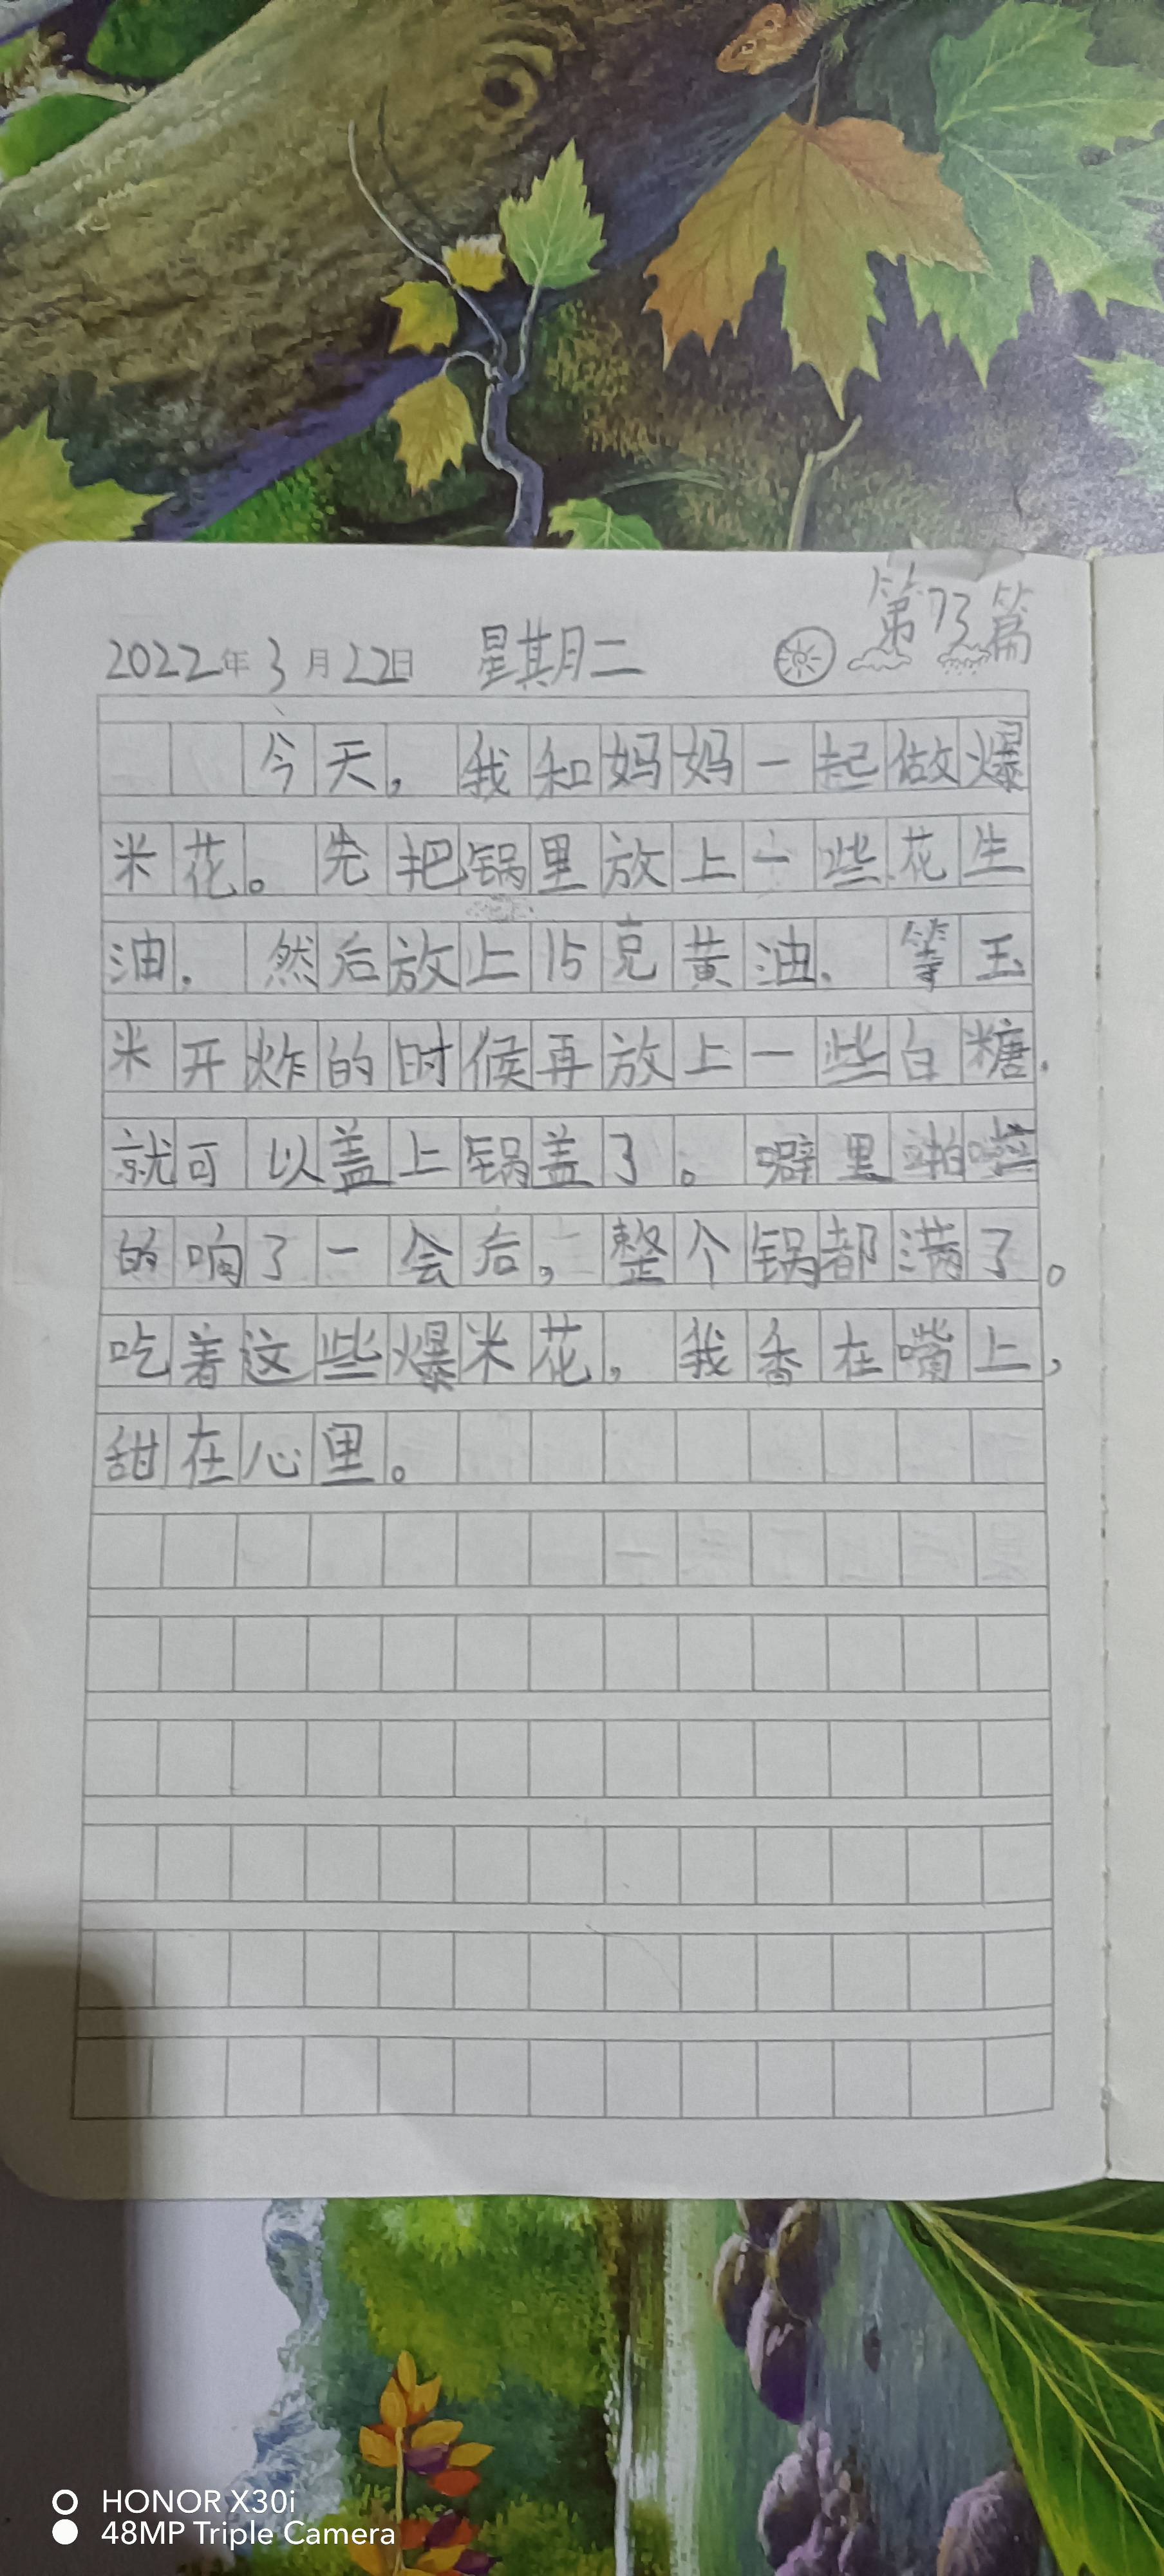 第73篇
2022年3月22日 星期二
今天，我和妈妈一起做爆
米花。先把锅里放上一些花生
油.然后放上15克黄油.等玉
米开炸的时候再放上一些白糖.
就可以盖上锅盖了。噼里啪
的响了一会后，整个锅都满了。
吃着这些爆米花，我香在嘴上，
甜在心里。
HONOR X30i
48MP Triple Camera